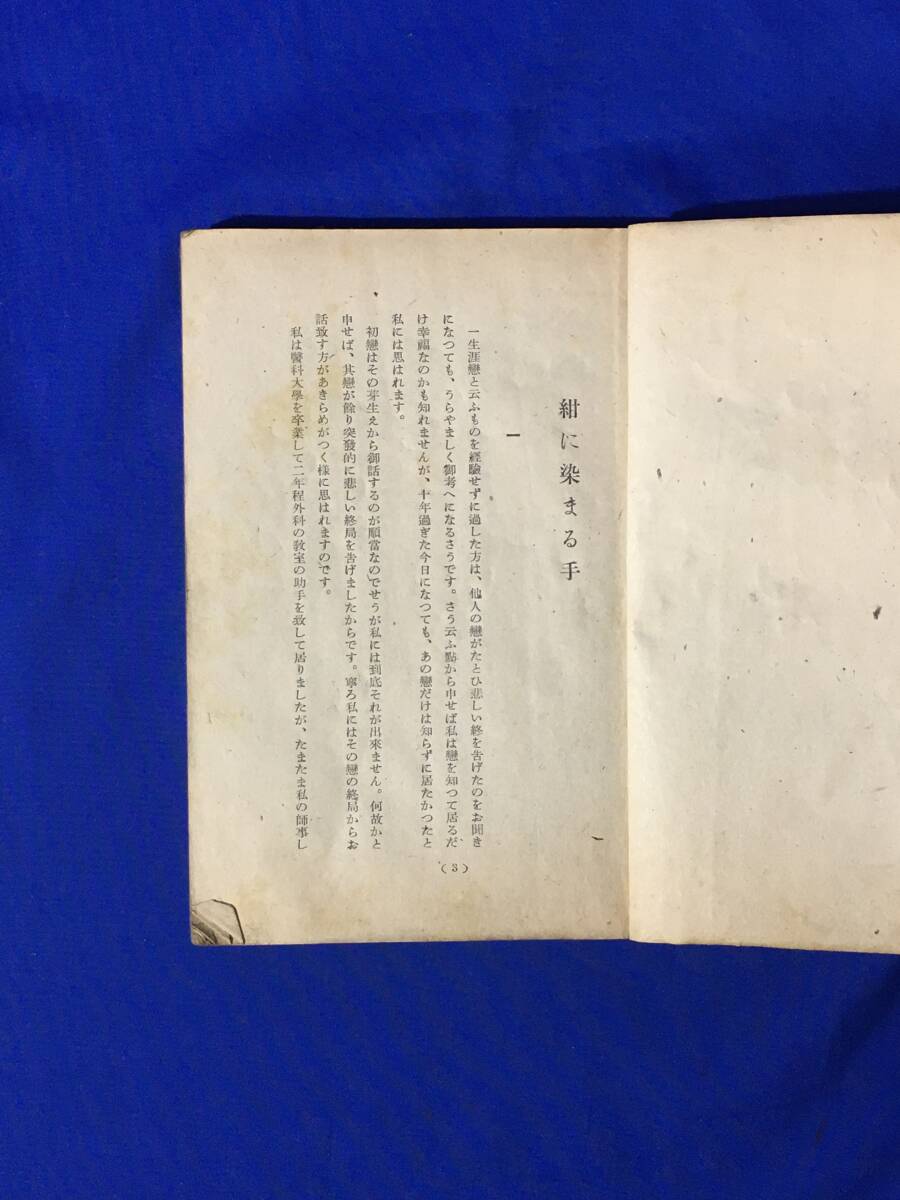 紺に染まる手
一
一生涯戀と云ふものを經驗せずに過した方は、他人の戀がたとひ悲しい終を吿げたのをお聞き
になつても、うらやましく御考へになるさうです。さう云ふ點から申せば私は戀を知つて居るだ
け幸福なのかも知れませんが、十年過ぎた今日になつても、あの戀だけは知らずに居たかつたと
私には思はれます。
初戀はその芽生えから御話するのが順當なのでせうが私には到底それが出來ません。何故かと
申せば、其戀が餘り突發的に悲しい終局を吿げましたからです。寧ろ私にはその戀の終局からお
話致す方があきらめがつく樣に思はれますのです。
私は醫科大學を卒業して二年程外科の敎室の助手を致して居りましたが、たまたま私の師事し
(3)